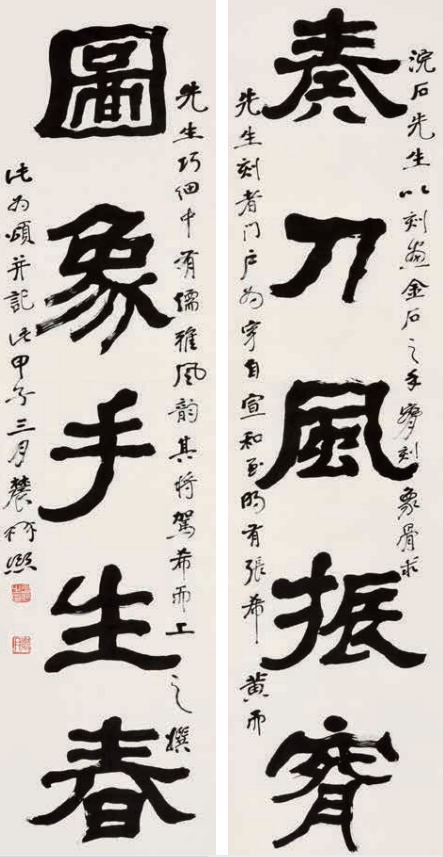 浣石先生以刻畫金石之手 刻象骨求
奏刀風振
先生刻者门户为穿自宣和至明有張希黄而
先生巧細中有儒雅風韵其将駕希而上之撰
圖象手生春
此为頌并記 甲子三月農